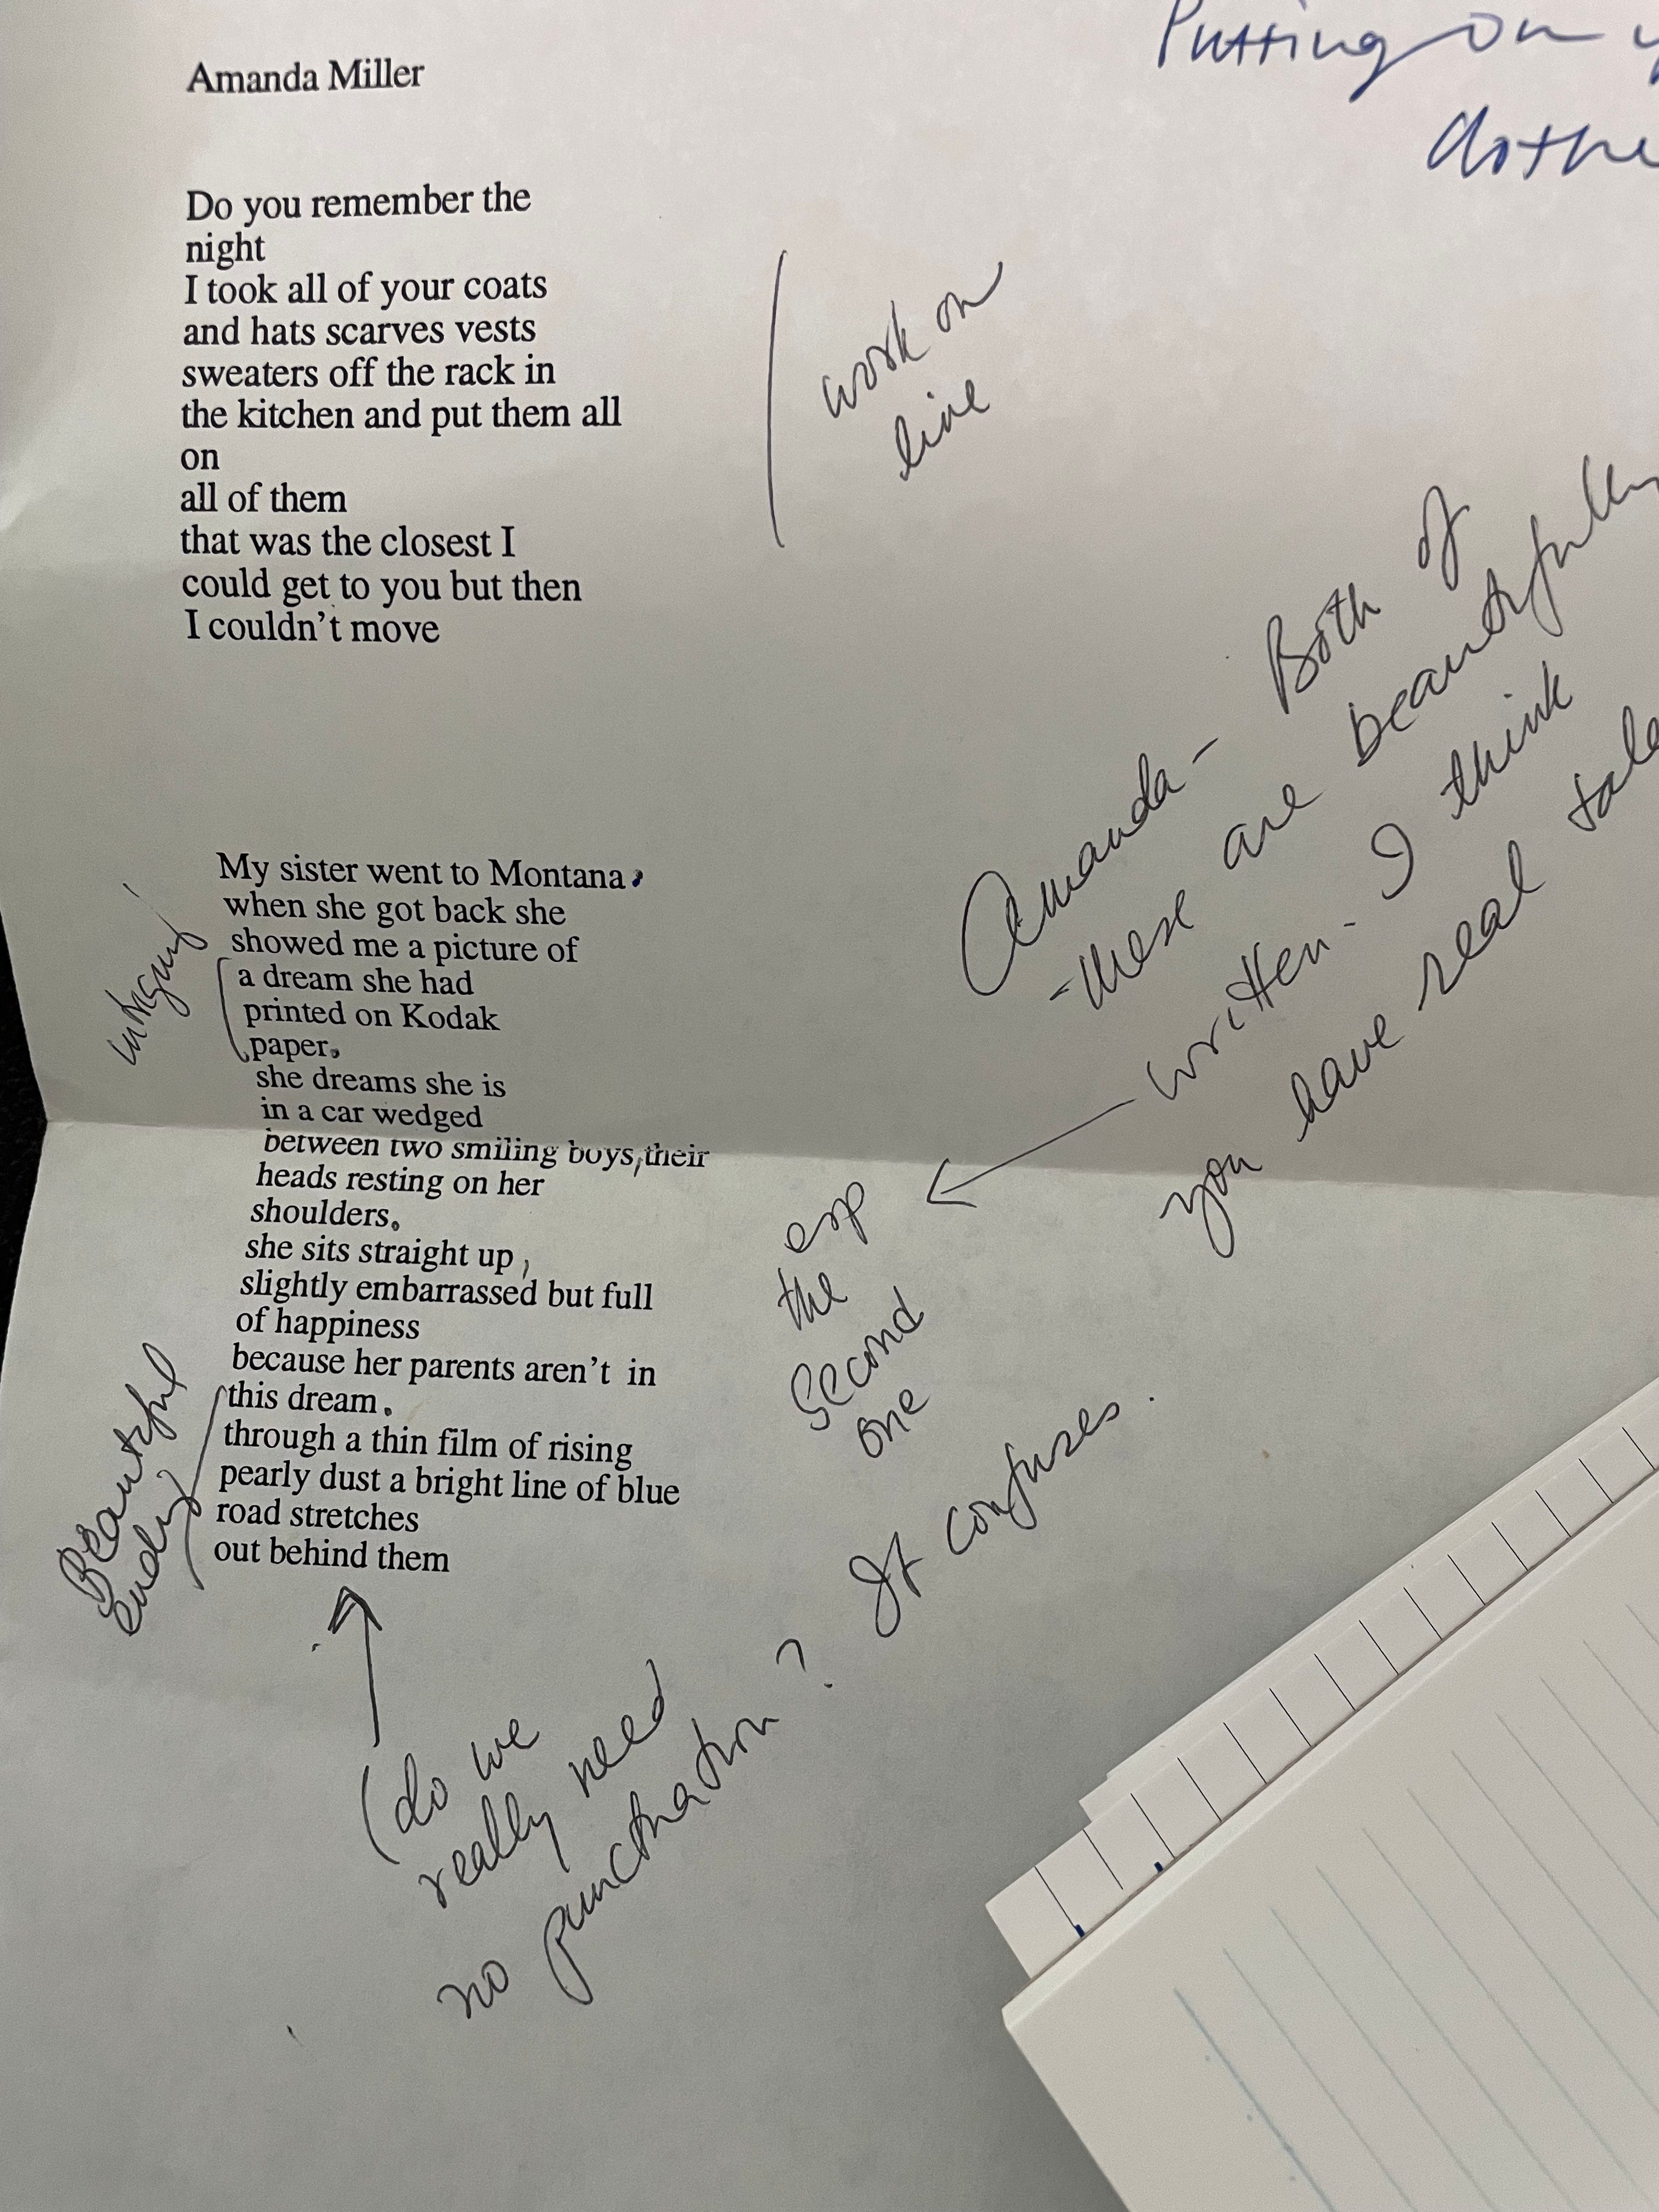 Putting on
Amanda Miller
Do you remember the
night
I took all of your coats
and hats scarves vests
sweaters off the rack in
the kitchen and put them all
on
all of them
that was the closest I
could get to you but then
I couldn't move
work on
line
Amanda - Both of
these are beautifully
written - I think
you have real
esp
the
second
one
My sister went to Montana,
when she got back she
showed me a picture of
a dream she had
printed on Kodak
paper.
she dreams she is
in a car wedged
between two smiling boys, their
heads resting on her
shoulders.
she sits straight up,
slightly embarrassed but full
of happiness
because her parents aren't in
this dream.
through a thin film of rising
pearly dust a bright line of blue
road stretches
out behind them
intriguing
Beautiful
ending
(do we
really need
no punctuation? It confuses.